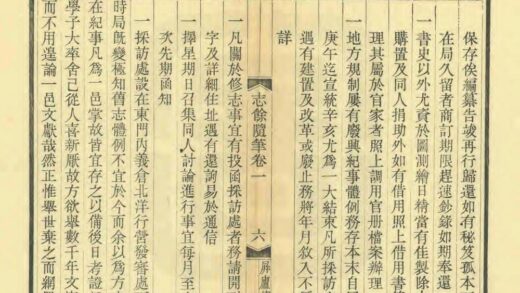 保存俟編纂告竣再行歸還如有秘笈孤本
在局久留者商訂期限趕速鈔錄如期奉還
一書史以外尤資於圖測繪日精當有佳製除
購置及同人捐助外如有借用照上借用書
理其屬於官家者照上調用官册檔案辦理
一地方規制屢有廢興紀事體例務存本末自
庚午迄宣統辛亥尤為一大結束凡所採訪
遇有建置及改革或廢止務將年月敘入不
詳
志餘隨筆卷一 六 屏廬
一凡關於修志事宜有投函採訪處者務請開
字及詳細住址遇有還詢易於通信
一擇星期日召集同人討論進行事宜每月至
次先期函知
一採訪處設在東門內義倉北洋行營發審處
時局旣變極知舊志體例不宜於今而余以為方
在紀事凡為一邑掌故皆宜存之以備後日考證
學子大率舍己從人喜新厭故方欲舉數千年文
而不用遑論一邑文獻哉然正惟舉世棄之而網